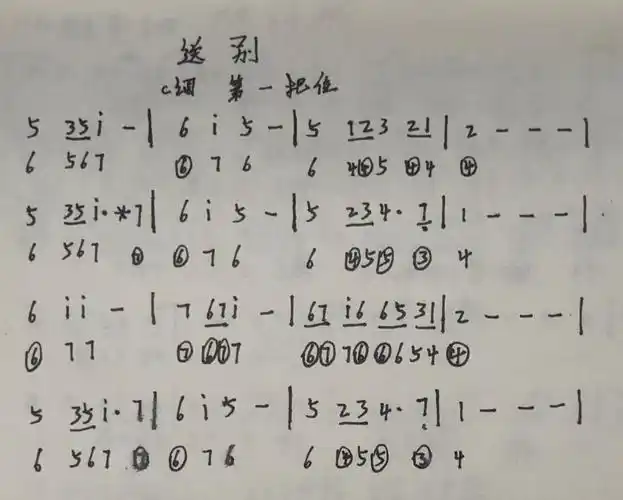 送别
C调 第一把位
5 35i - | 6 i 5 - | 5 123 21 | 2 - - - |
6 567 ⑥ 7 6 6 4④5 ④4 ④
5 35i·*7 | 6 i 5 - | 5 234·7̣ | 1 - - - |
6 567 ⑦ ⑥ 7 6 6 ④5⑤ ③ 4
6 ii - | 7 67i - | 67 i6 65 31 | 2 - - - |
⑥ 77 ⑦ ⑥⑦7 ⑥⑦7⑥⑥654 ④
5 35i·7 | 6 i*5 - | 5 234·7̣ | 1 - - - |
6 567 ⑦ ⑥ 7 6 6 ④5⑤ ③ 4